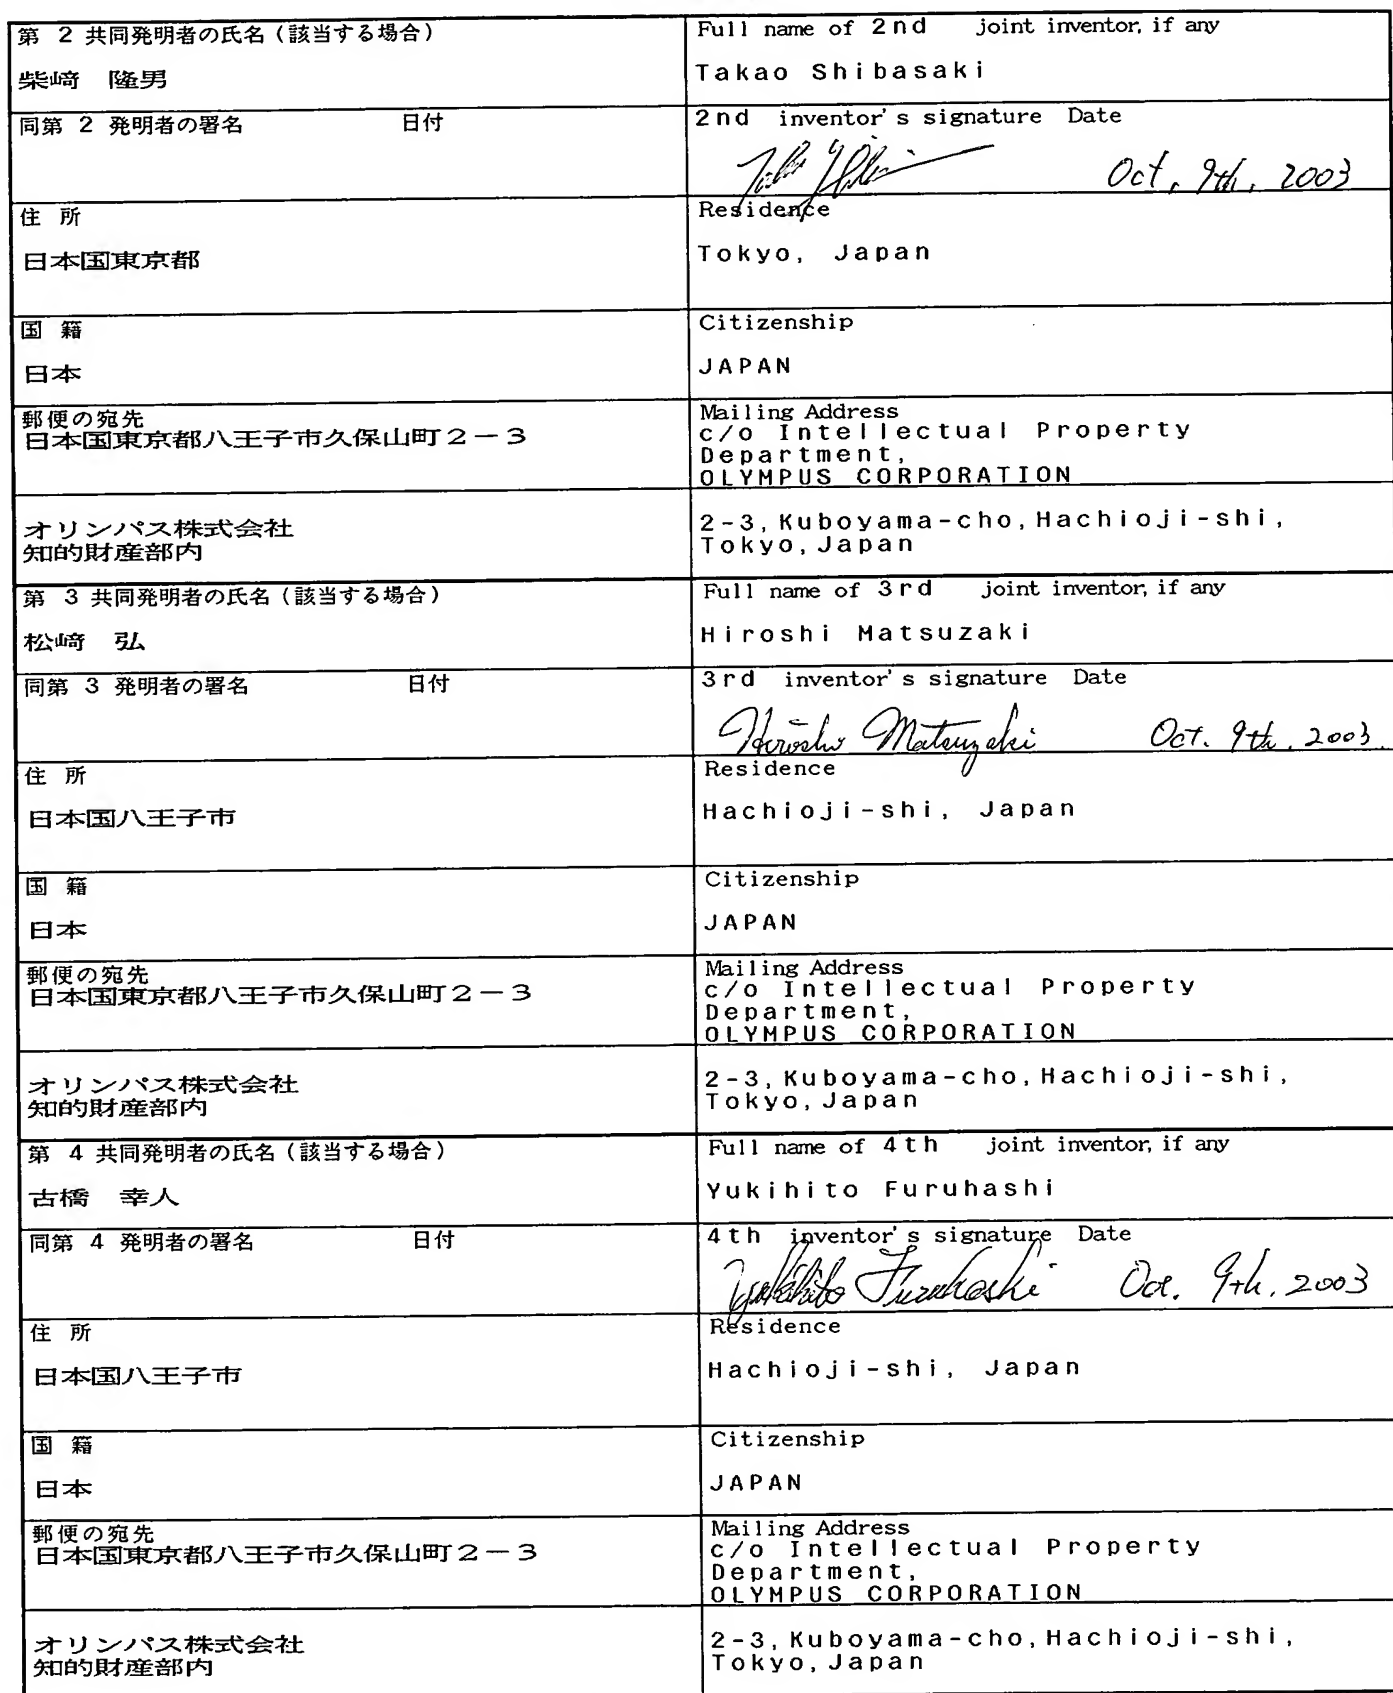 第 2 共同発明者の氏名（該当する場合）
柴﨑 隆男
Full name of 2nd joint inventor, if any
Takao Shibasaki
同第 2 発明者の署名 日付
2nd inventor's signature Date
Oct. 9th, 2003
住 所
日本国東京都
Residence
Tokyo, Japan
国 籍
日本
Citizenship
JAPAN
郵便の宛先
日本国東京都八王子市久保山町２－３
Mailing Address
c/o Intellectual Property
Department,
OLYMPUS CORPORATION
オリンパス株式会社
知的財産部内
2-3, Kuboyama-cho, Hachioji-shi,
Tokyo, Japan
第 3 共同発明者の氏名（該当する場合）
松﨑 弘
Full name of 3rd joint inventor, if any
Hiroshi Matsuzaki
同第 3 発明者の署名 日付
3rd inventor's signature Date
Hiroshi Matsuzaki Oct. 9th. 2003.
住 所
日本国八王子市
Residence
Hachioji-shi, Japan
国 籍
日本
Citizenship
JAPAN
郵便の宛先
日本国東京都八王子市久保山町２－３
Mailing Address
c/o Intellectual Property
Department,
OLYMPUS CORPORATION
オリンパス株式会社
知的財産部内
2-3, Kuboyama-cho, Hachioji-shi,
Tokyo, Japan
第 4 共同発明者の氏名（該当する場合）
古橋 幸人
Full name of 4th joint inventor, if any
Yukihito Furuhashi
同第 4 発明者の署名 日付
4th inventor's signature Date
Yukihito Furuhashi Oct. 9th. 2003
住 所
日本国八王子市
Residence
Hachioji-shi, Japan
国 籍
日本
Citizenship
JAPAN
郵便の宛先
日本国東京都八王子市久保山町２－３
Mailing Address
c/o Intellectual Property
Department,
OLYMPUS CORPORATION
オリンパス株式会社
知的財産部内
2-3, Kuboyama-cho, Hachioji-shi,
Tokyo, Japan